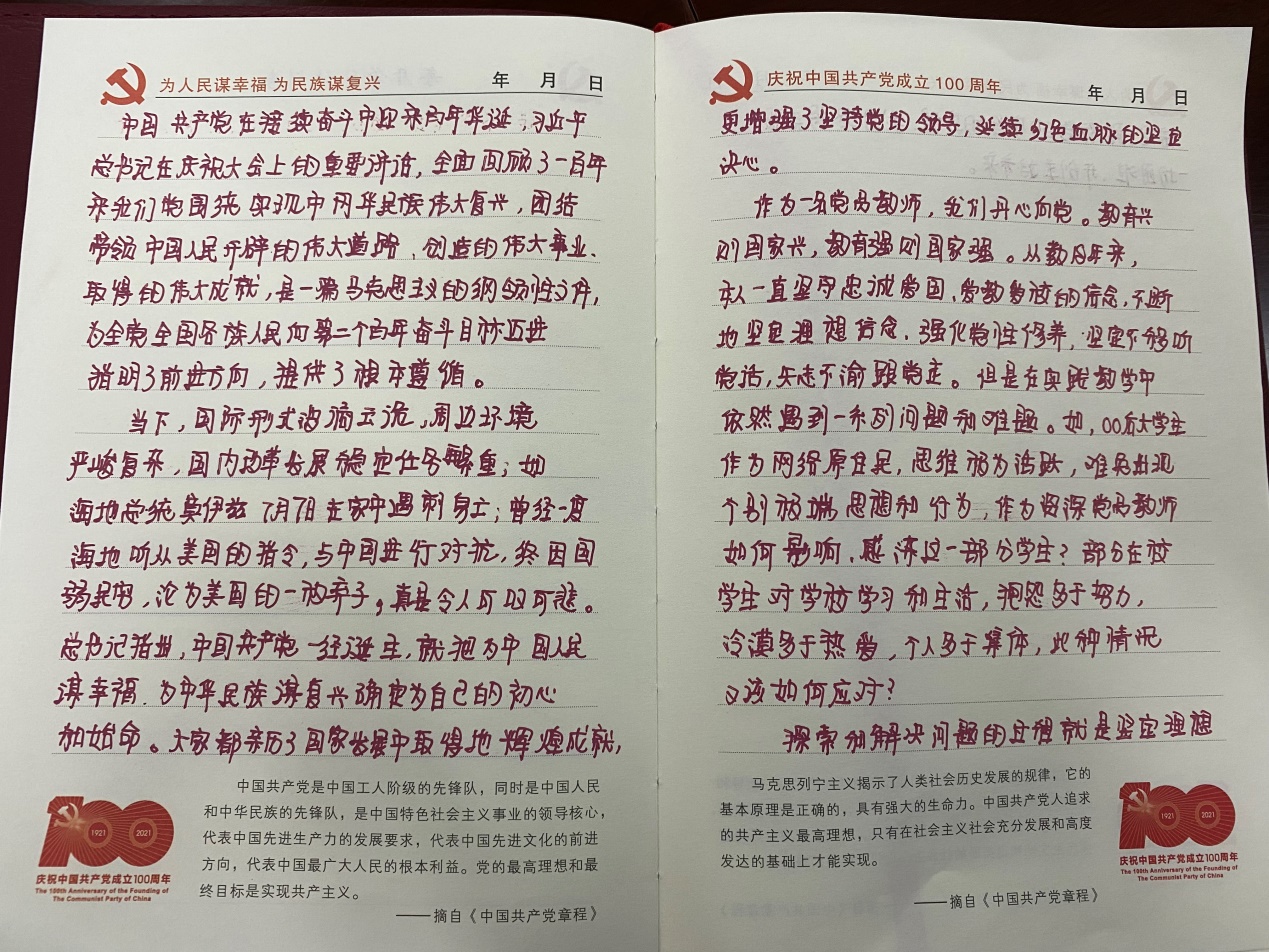 为人民谋幸福 为民族谋复兴 年 月 日
中国共产党在接续奋斗中迎来百年华诞,习近平
总书记在庆祝大会上的重要讲话,全面回顾了一百年
来我们党围绕实现中网华民族伟大复兴,团结
带领中国人民开辟的伟大道路、创造的伟大事业、
取得的伟大成就,是一篇马克思主义的纲领性文件,
为全党全国各族人民向第二个百年奋斗目标迈进
指明了前进方向,提供了根本遵循。
当下,国际形式波谲云诡,周边环境
严峻复杂,国内改革发展稳定任务繁重;如
海地总统莫伊兹7月7日在家中遇刺身亡;曾经一度
海地听从美国的指令,与中国进行对抗,终因国
弱民穷,沦为美国的一枚弃子,真是令人可叹可悲。
总书记指出,中国共产党一经诞生,就把为中国人民
谋幸福、为中华民族谋复兴确定为自己的初心
和始命。大家都亲历了国家发展中取得地辉煌成就,
中国共产党是中国工人阶级的先锋队,同时是中国人民
和中华民族的先锋队,是中国特色社会主义事业的领导核心,
代表中国先进生产力的发展要求,代表中国先进文化的前进
方向,代表中国最广大人民的根本利益。党的最高理想和最
终目标是实现共产主义。
——摘自《中国共产党章程》
100
1921 2021
庆祝中国共产党成立100周年
The 100th Anniversary of the Founding of
The Communist Party of China
庆祝中国共产党成立100周年 年 月 日
更增强了坚持党的领导,延续红色血脉的坚定
决心。
作为一名党员教师,我们丹心向党。教育兴
则国家兴,教育强则国家强。从教几年来,
本人一直坚守忠诚爱国、爱教爱校的信念,不断
地坚定理想信念、强化党性修养,坚定不移听
党话,矢志不渝跟党走。但是在实践教学中
依然遇到一系列问题和难题。如,00后大学生
作为网络原住民,思维极为活跃,难免出现
个别极端思想和行为,作为资深党员教师
如何影响、感染这一部分学生?部分在校
学生对学校学习和生活,抱怨多于努力,
冷漠多于热爱,个人多于集体,此种情况
又该如何应对?
探索和解决问题的过程就是坚定理想
马克思列宁主义揭示了人类社会历史发展的规律,它的
基本原理是正确的,具有强大的生命力。中国共产党人追求
的共产主义最高理想,只有在社会主义社会充分发展和高度
发达的基础上才能实现。
——摘自《中国共产党章程》
100
1921 2021
庆祝中国共产党成立100周年
The 100th Anniversary of the Founding of
The Communist Party of China